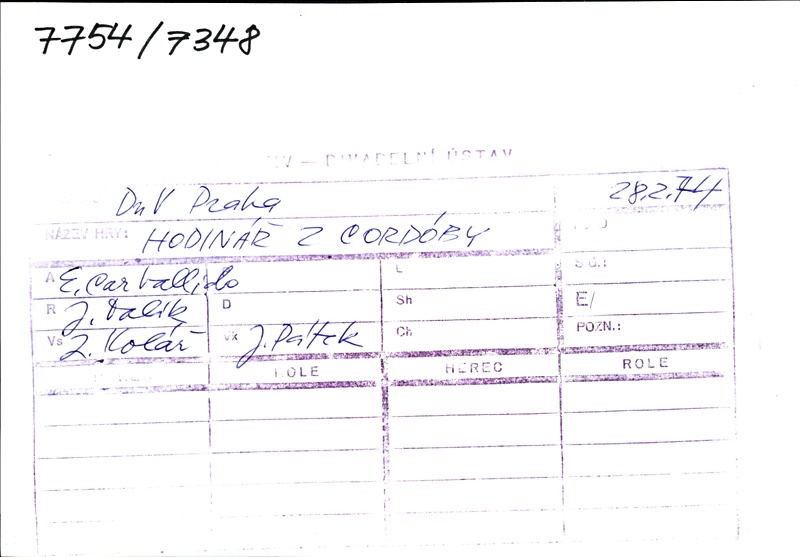 7754/7348
DIVADELNÍ ÚSTAV
DnV Praha 28.2.74
NÁZEV HRY: HODINÁŘ Z CORDÓBY
A E. Carballido L
R J. Dalík D Sh E/
Vs Z. Kolář Vk J. Pátek Ch POZN.:
ROLE HEREC ROLE